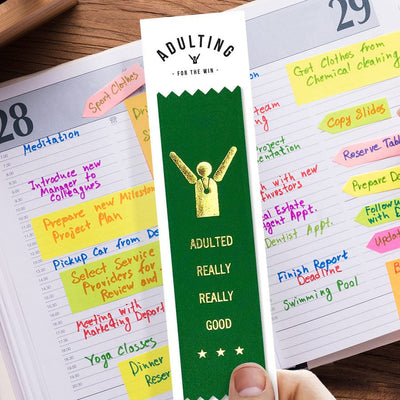 ADULTING
- FOR THE WIN -
ADULTED
REALLY
REALLY
GOOD
28
Sport Clothes
Meditation
Introduce new
Manager to
colleagues
Prepare new Milestone
Project Plan
Pickup Car from
Select Service
Providers for
Review and
Meeting with
Marketing Depart
Yoga Classes
Dinner
Reser
29
Get Clothes from
Chemical cleaning
team
Copy Slides
Project
Presentation
Reserve Table
with new
Investors
Prepare
Real Estate
Agent Appt.
Follow
with E
Dentist Appt.
Update
Finish Report
Deadline
Swimming Pool